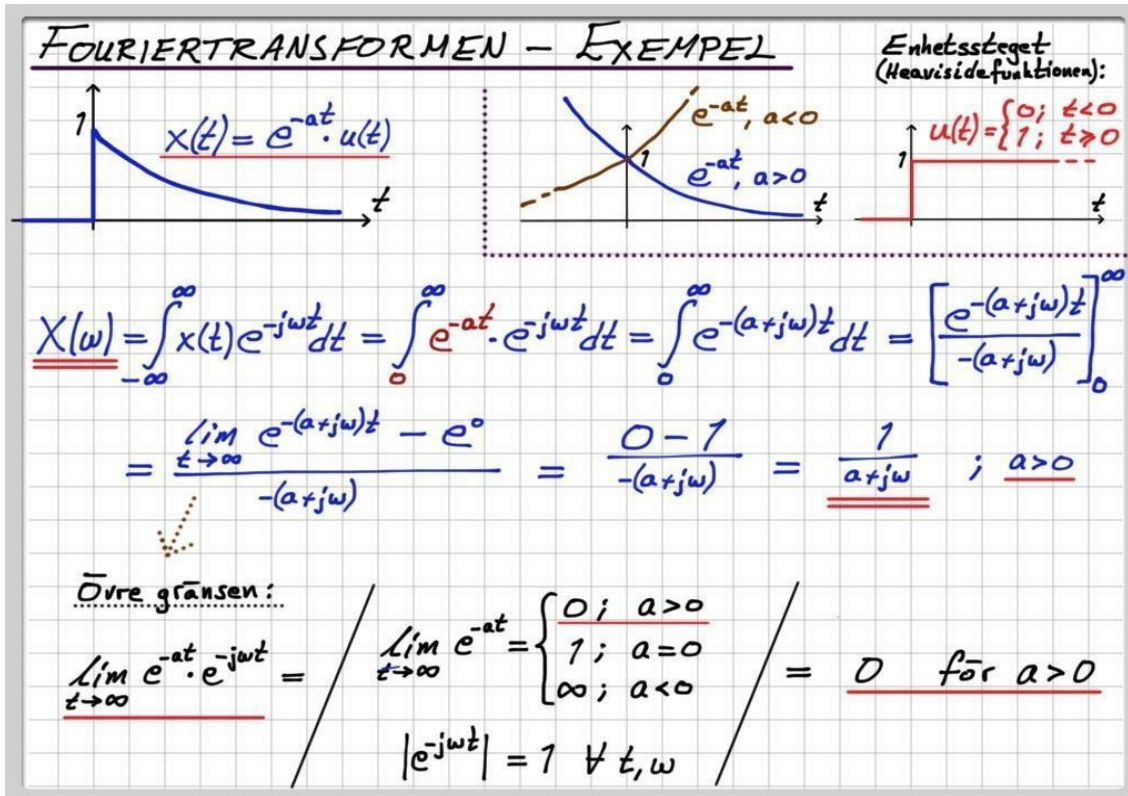 FOURIERTRANSFORMEN – EXEMPEL
Enhetssteget
(Heavisidefunktionen):
1
x(t) = e^{-at} · u(t)
t
e^{-at}, a<0
1
e^{-at}, a>0
t
u(t) = { 0; t<0
1; t≥0
1
t
X(ω) = ∫_{-∞}^{∞} x(t) e^{-jωt} dt = ∫_{0}^{∞} e^{-at} · e^{-jωt} dt = ∫_{0}^{∞} e^{-(a+jω)t} dt = [ e^{-(a+jω)t} / -(a+jω) ]_{0}^{∞}
= (lim_{t→∞} e^{-(a+jω)t} - e^{0}) / -(a+jω) = (0-1) / -(a+jω) = 1 / (a+jω) ; a>0
Övre gränsen:
lim_{t→∞} e^{-at} · e^{-jωt} = / lim_{t→∞} e^{-at} = { 0; a>0
1; a=0
∞; a<0
|e^{-jωt}| = 1 ∀ t,ω
/ = 0 för a>0